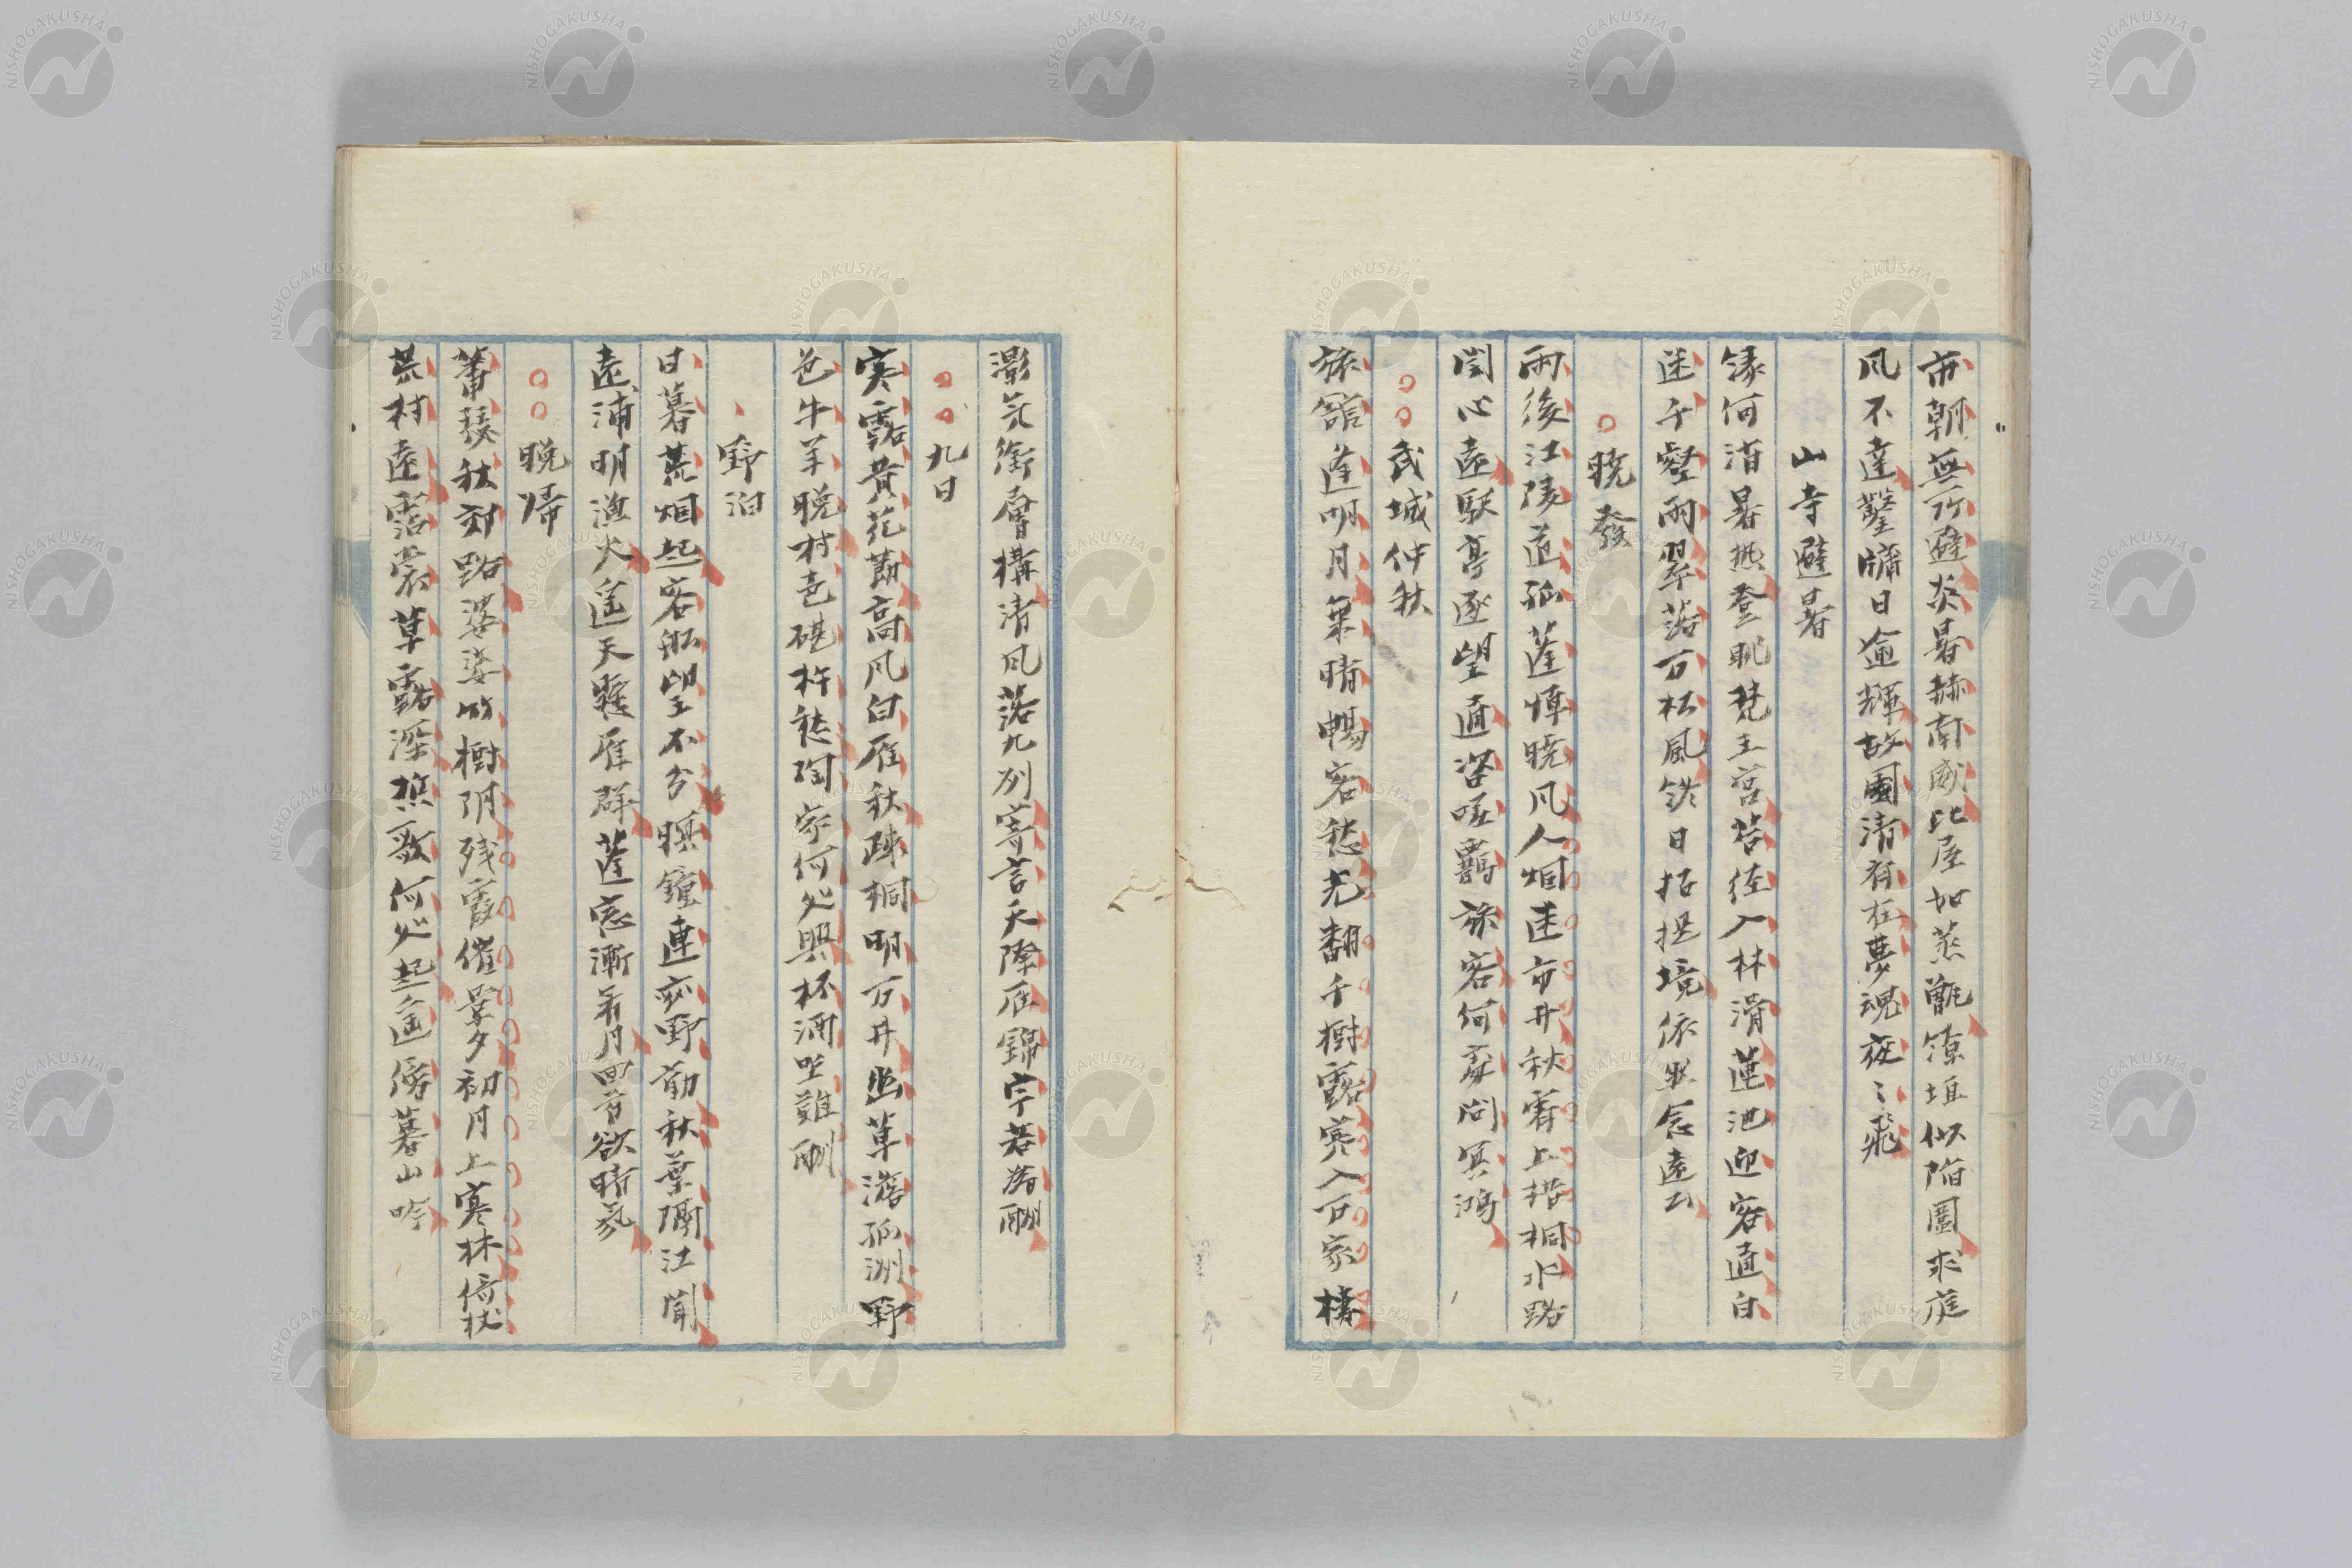 市朝無所避炎暑赫南威比屋如蒸甑鐐垣似陷圍求庭
風不達鑿牖日逾輝故園清有在夢魂夜〻飛
山寺避暑
緣何消暑熱登眺梵王宮苔徑入林滑蓮池迎客通白
迷千壑雨翠落万松風鎮日招提境依然念遠公
曉發
雨後江陵道孤蓬悼曉風人烟迷市井秋霽上梧桐水路
関心遠駅亭逐望通咨嗟羈旅客何處問冥鴻
武城仲秋
旅館逢明月氣晴暢客愁光翻千樹露寒入万家樓
灝気衝層構清風落九州寄言天際雁錦字若為酬
九日
寒露黄花節高風白雁秋疎桐明万井幽草澹孤洲野
色牛羊晩村意砧杵愁陶家何処興杯酒坐難酬
野泊
日暮荒烟起客船望不分暝鐘連寂野前秋葉隔江聞
遠浦明漁火遥天凝雁群蓬窓漸看月四首欲時氛
晩帰
蕭瑟秋郊路婆娑竹樹陰残霞催翠夕初月上寒林倚杖
荒村遠霑裳草露深樵歌何処起遥傍暮山吟
NISHOGAKUSHA